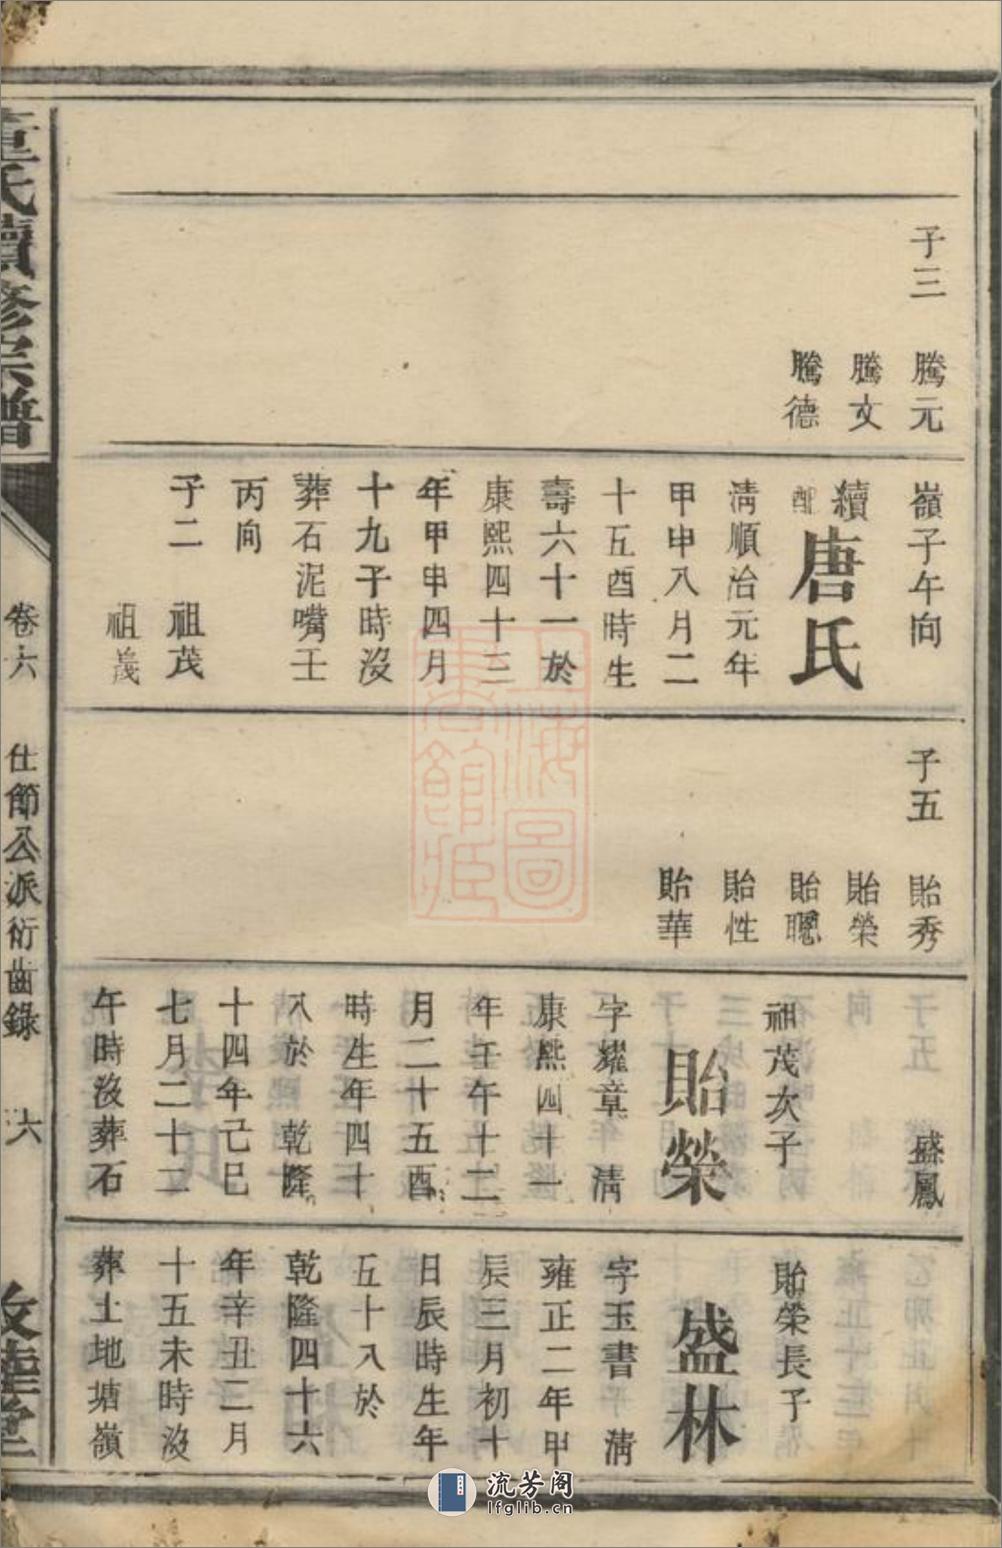 子三 騰元
騰文
騰德
嶺子午向
續配唐氏
淸順治元年
甲申八月二
十五酉時生
壽六十一於
康熙四十三
年甲申四月
十九子時沒
葬石泥嘴壬
丙向
子二 祖茂
祖茂
子五 貽秀
貽榮
貽聰
貽性
貽華
盛鳳
祖茂次子
貽榮
字耀章 淸
康熙四十一
年壬午十二
月二十五酉
時生年四十
八於 乾隆
十四年己巳
七月二十二
午時沒葬石
貽榮長子
盛林
字玉書 淸
雍正二年甲
辰三月初十
日辰時生年
五十八於
乾隆四十六
年辛丑二月
十五未時沒
葬土地塘嶺
氏續修宗譜
卷六 仕節公派衍齒錄 六
上海圖書館藏
流芳阁
lfglib.cn